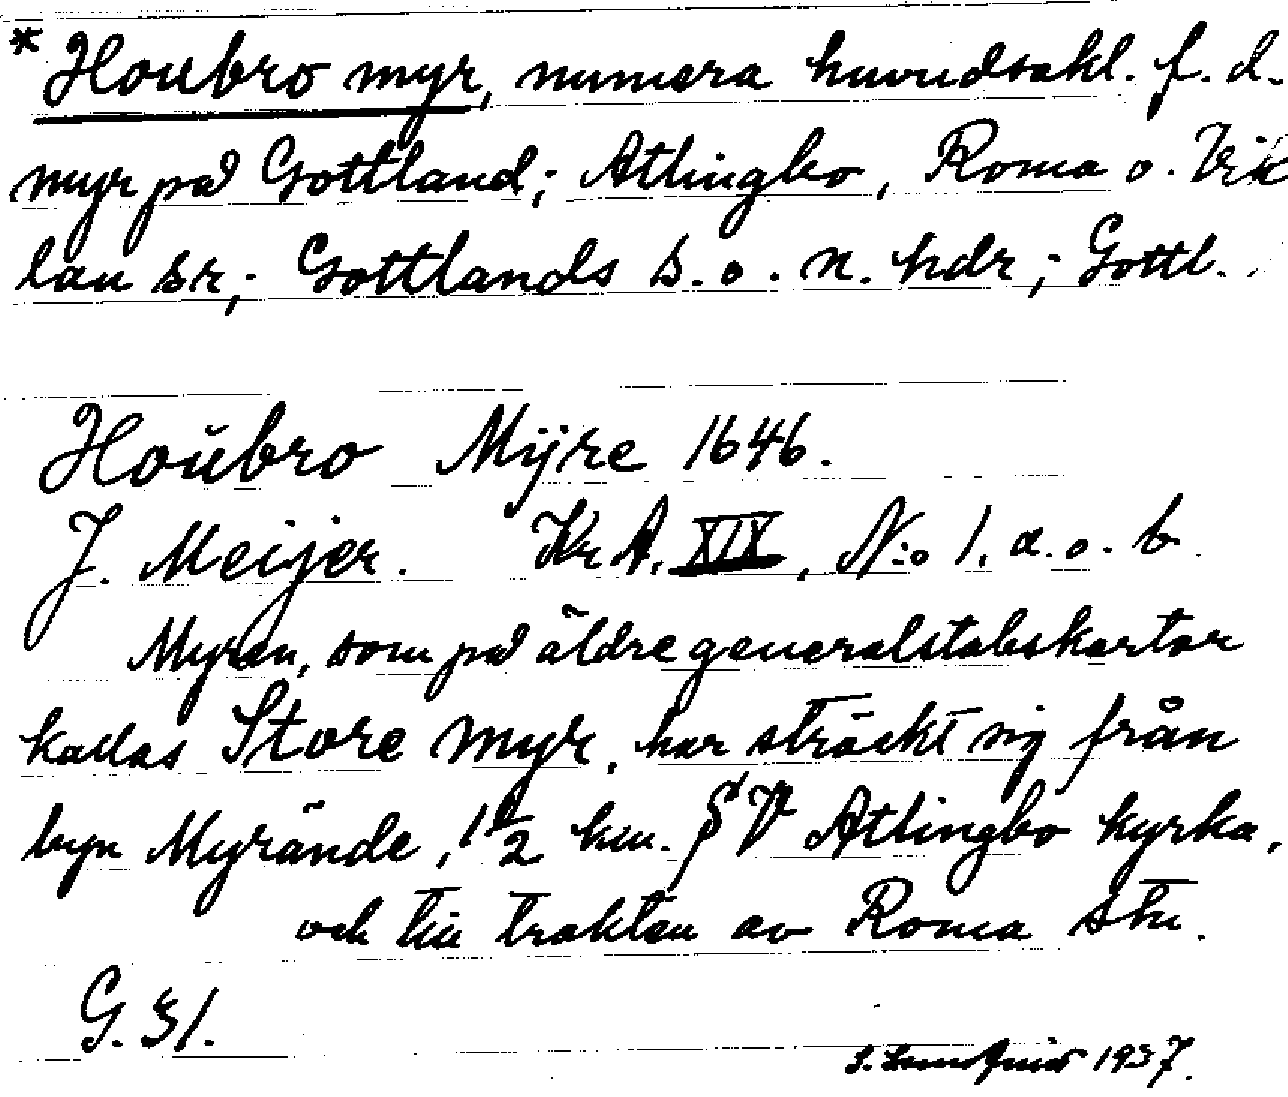 * Houbro myr, numera huvudsakl. f. d.
myr på Gottland; Atlingbo, Roma o. Vik
lau sr; Gottlands s. o. n. hdr; Gottl.
Hoŭbro Mÿre 1646.
J. Meijer. Kr A. XIX, N:o 1. a. o. b.
Myren, som på äldre generalstabskartor
kallas Store myr, har sträckt sig från
byn Myrände, 1 1/2 km. SV Atlingbo kyrka,
och till trakten av Roma stn.
G. 31.
1937.